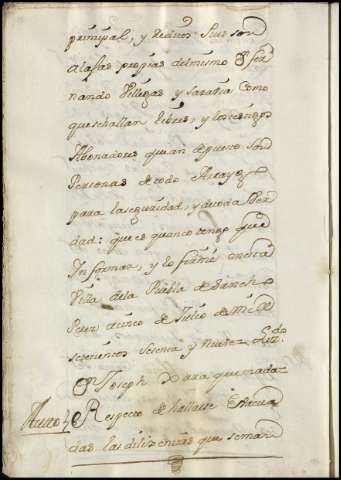 principal, y reditos suios son
alajas propias del mismo Dn fer
nando Villegas y Sarabia como
que se hallan libres, y los testigos
Abonadores que an depuesto son
Personas de todo Arraygo
para la seguridad, y dicha Ver
dad: que es quanto tengo que
Informar, y lo firmé en esta
Villa de la Puebla de Sancho
Perez a cinco de Julio de mil
setecientos setenta y nueve Lizdo.
Dn Joseph Xara quemada
Auto Respecto de hallarse Evacua
das las dilixencias que se man